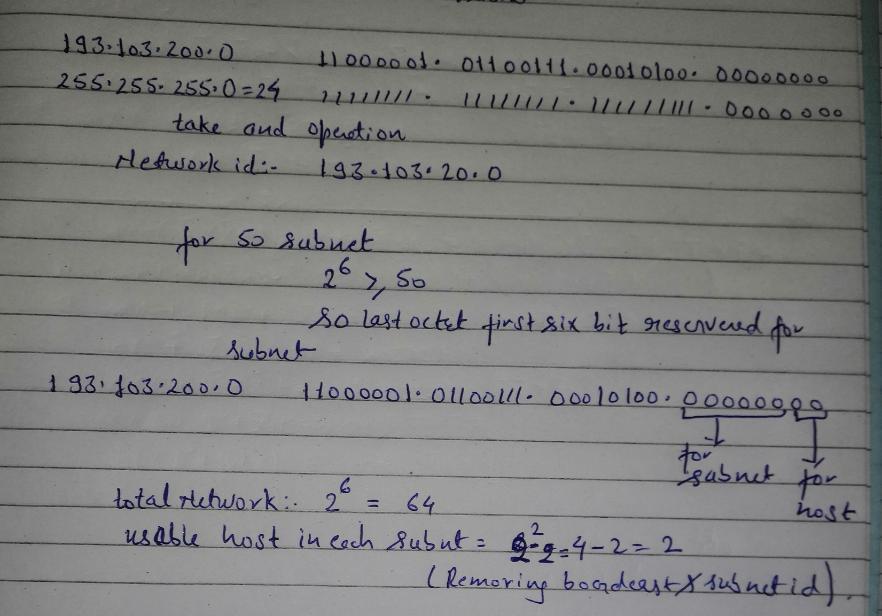 193.103.200.0 11000001. 01100111.00010100. 00000000
255.255.255.0=24 11111111. 11111111.111111111.0000000
take and operation
Network id:- 193.103.20.0
for 50 subnet
2^6 >, 50
so last octet first six bit reserved for
subnet
193.103.200.0 11000001.01100111.00010100.00000000
for subnet for host
total network:. 2^6 = 64
usable host in each subnet = 2^2-2=4-2=2
(Removing boardcast & subnet id).